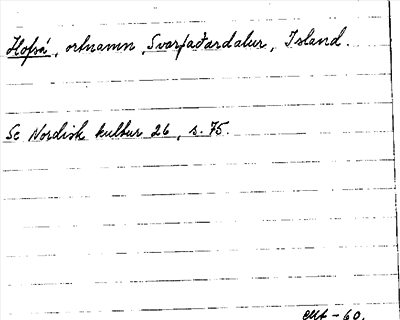 Hofsá, ortnamn, Svarfaðardalur, Island.
Se Nordisk kultur 26, s. 75.
-60.